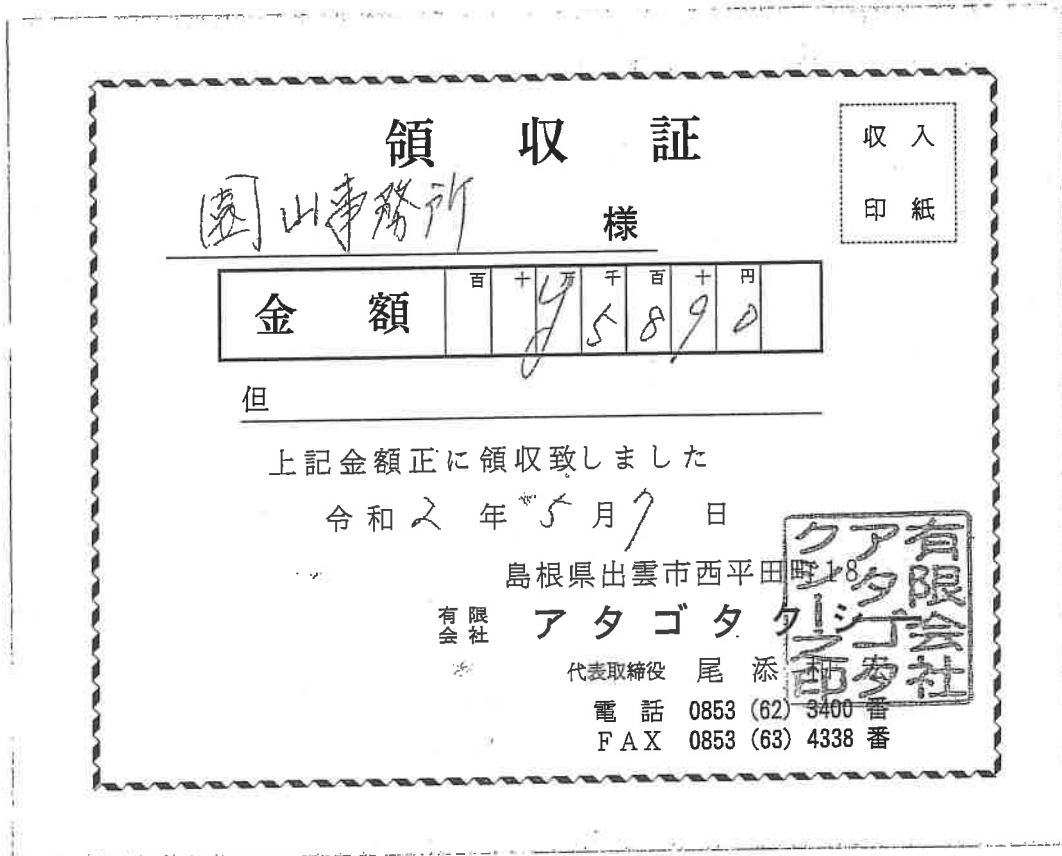 領収証
収入
印紙
園山事務所 様
金額 百 十 万 千 百 十 円
¥5890
但
上記金額正に領収致しました
令和2年5月7日
島根県出雲市西平田町18
有限会社 アタゴタクシー
代表取締役 尾添
電話 0853 (62) 3400 番
FAX 0853 (63) 4338 番
有限会社
アタゴタ
クシー之印